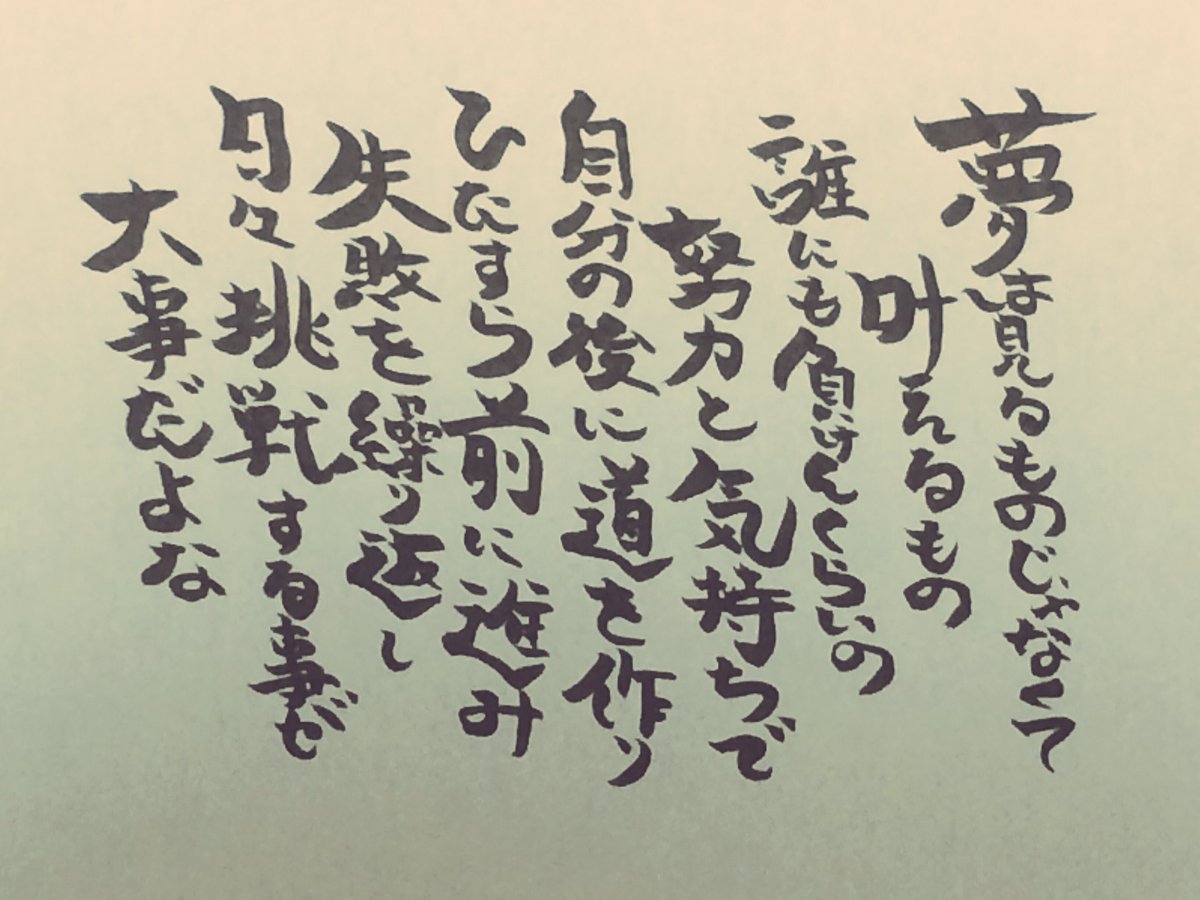 夢は見るものじゃなくて
叶えるもの
誰にも負けんくらいの
努力と気持ちで
自分の後に道を作り
ひたすら前に進み
失敗を繰り返し
日々挑戦する事が
大事だよな